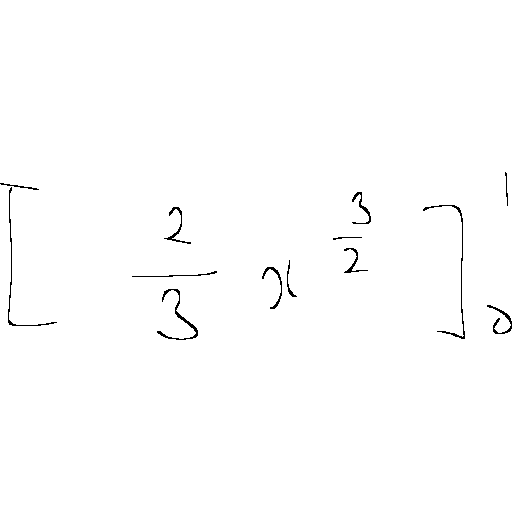 [ \frac{2}{3} x^{\frac{3}{2}} ]_0^1